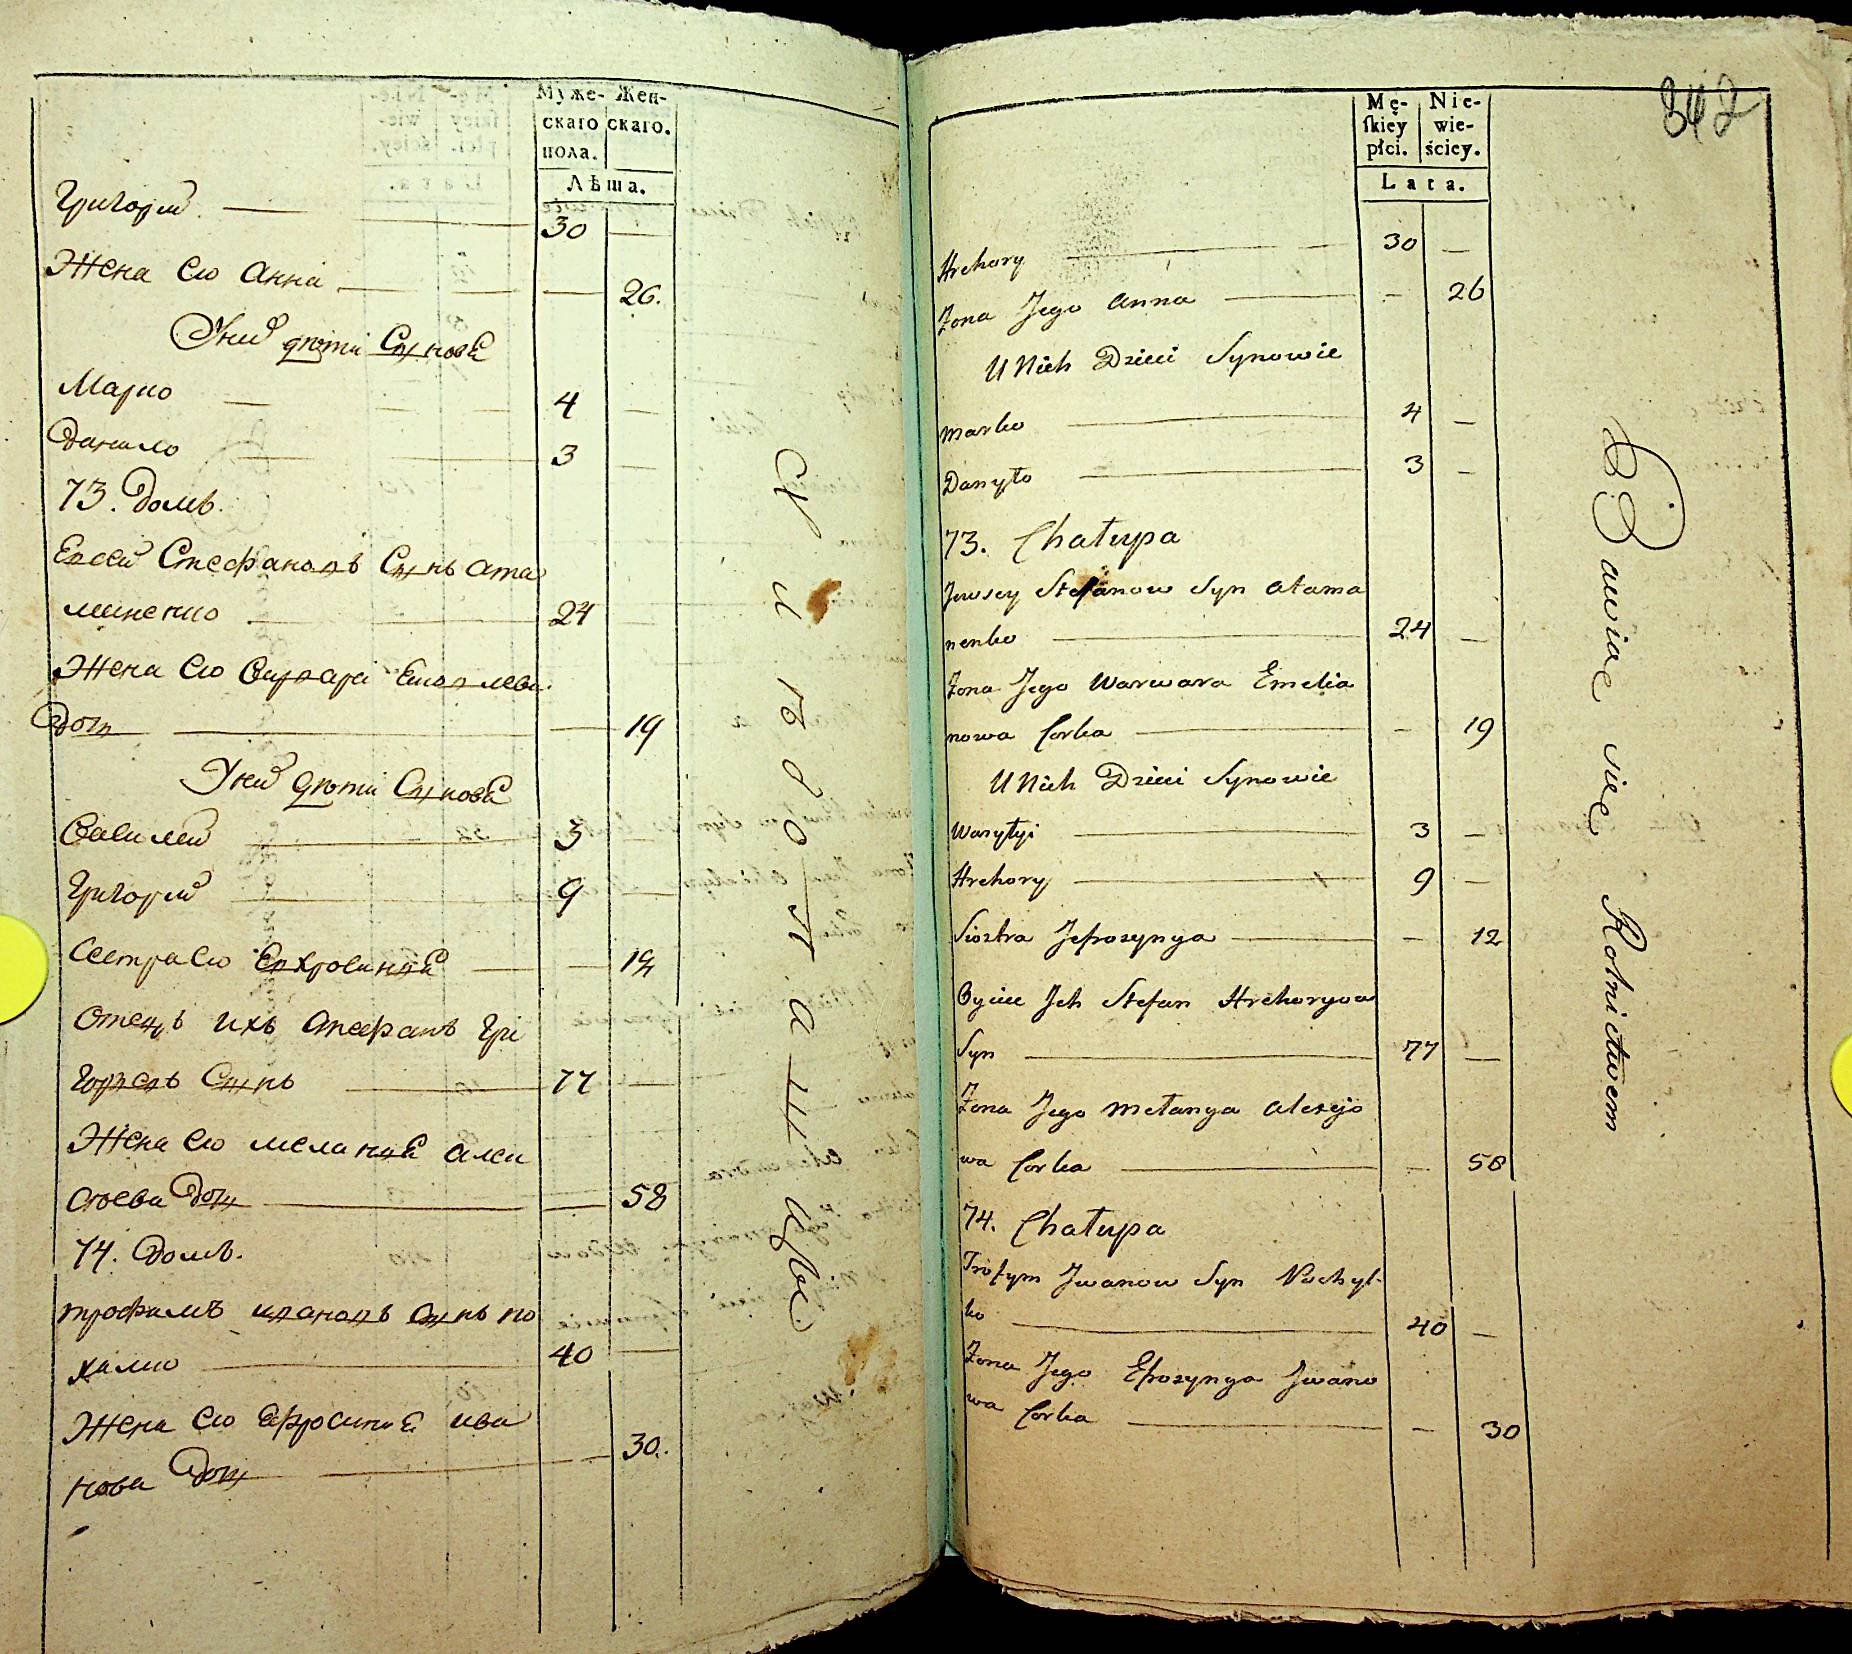 Муже- Жен-
скаго скаго.
пола.
Лѣта.
Григорій 30
Жена Его Анна 26.
У них дѣти Сынове
Марко 4
Данило 3
73. Домъ.
Евсей Стефановъ Сынъ Ата
маненко 24
Жена Его Варвара
Дочь 19
У них дѣти Сынове
Василей 3
Григорій 9
Сестра Его 12
Отецъ ихъ Стефанъ Гри
горьевъ Сынъ 77
Жена Его Меланія Алек
сѣева Дочь 58
74. Домъ.
Трофимъ Ивановъ Сынъ По
хилко 40
Жена Его Ефросинія Ива
нова Дочь 30.
342
Mę- Nie-
skiey wie-
płci. ściey.
Lata.
Hrehory 30
Żona Jego Anna 26
U Nich Dzieci Synowie
Marko 4
Danyło 3
73. Chałupa
Jewsey Stefanow Syn Atama
nenko 24
Żona Jego Warwara Emelia
nowa Corka 19
U Nich Dzieci Synowie
Wasylyi 3
Hrehory 9
Siostra Jefrosynya 12
Oyciec Jch Stefan Hrehoryow
Syn 77
Żona Jego Mełanya Alexijo
wa Corka 58
74. Chałupa
Trofym Jwanow Syn Pochył-
ko 40
Żona Jego Efrosynya Jwano
wa Corka 30
Bawiąc się Rolnictwem